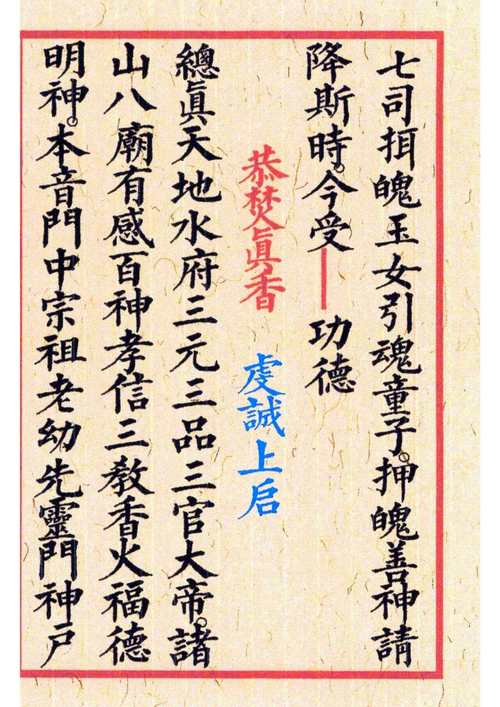 七司抇魄玉女引魂童子。押魄善神請
降斯時。今受——功德
恭焚眞香
虔誠上启
總眞天地水府三元三品三官大帝。諸
山八廟有感百神孝信三教香火福德
明神。本音門中宗祖老幼先靈門神戶